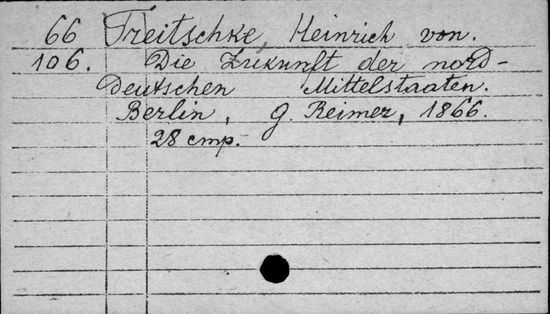 66 Treitschke, Heinrich von.
106. Die Zukunft der nord-
deutschen Mittelstaaten.
Berlin, G. Reimer, 1866.
28 cmp.